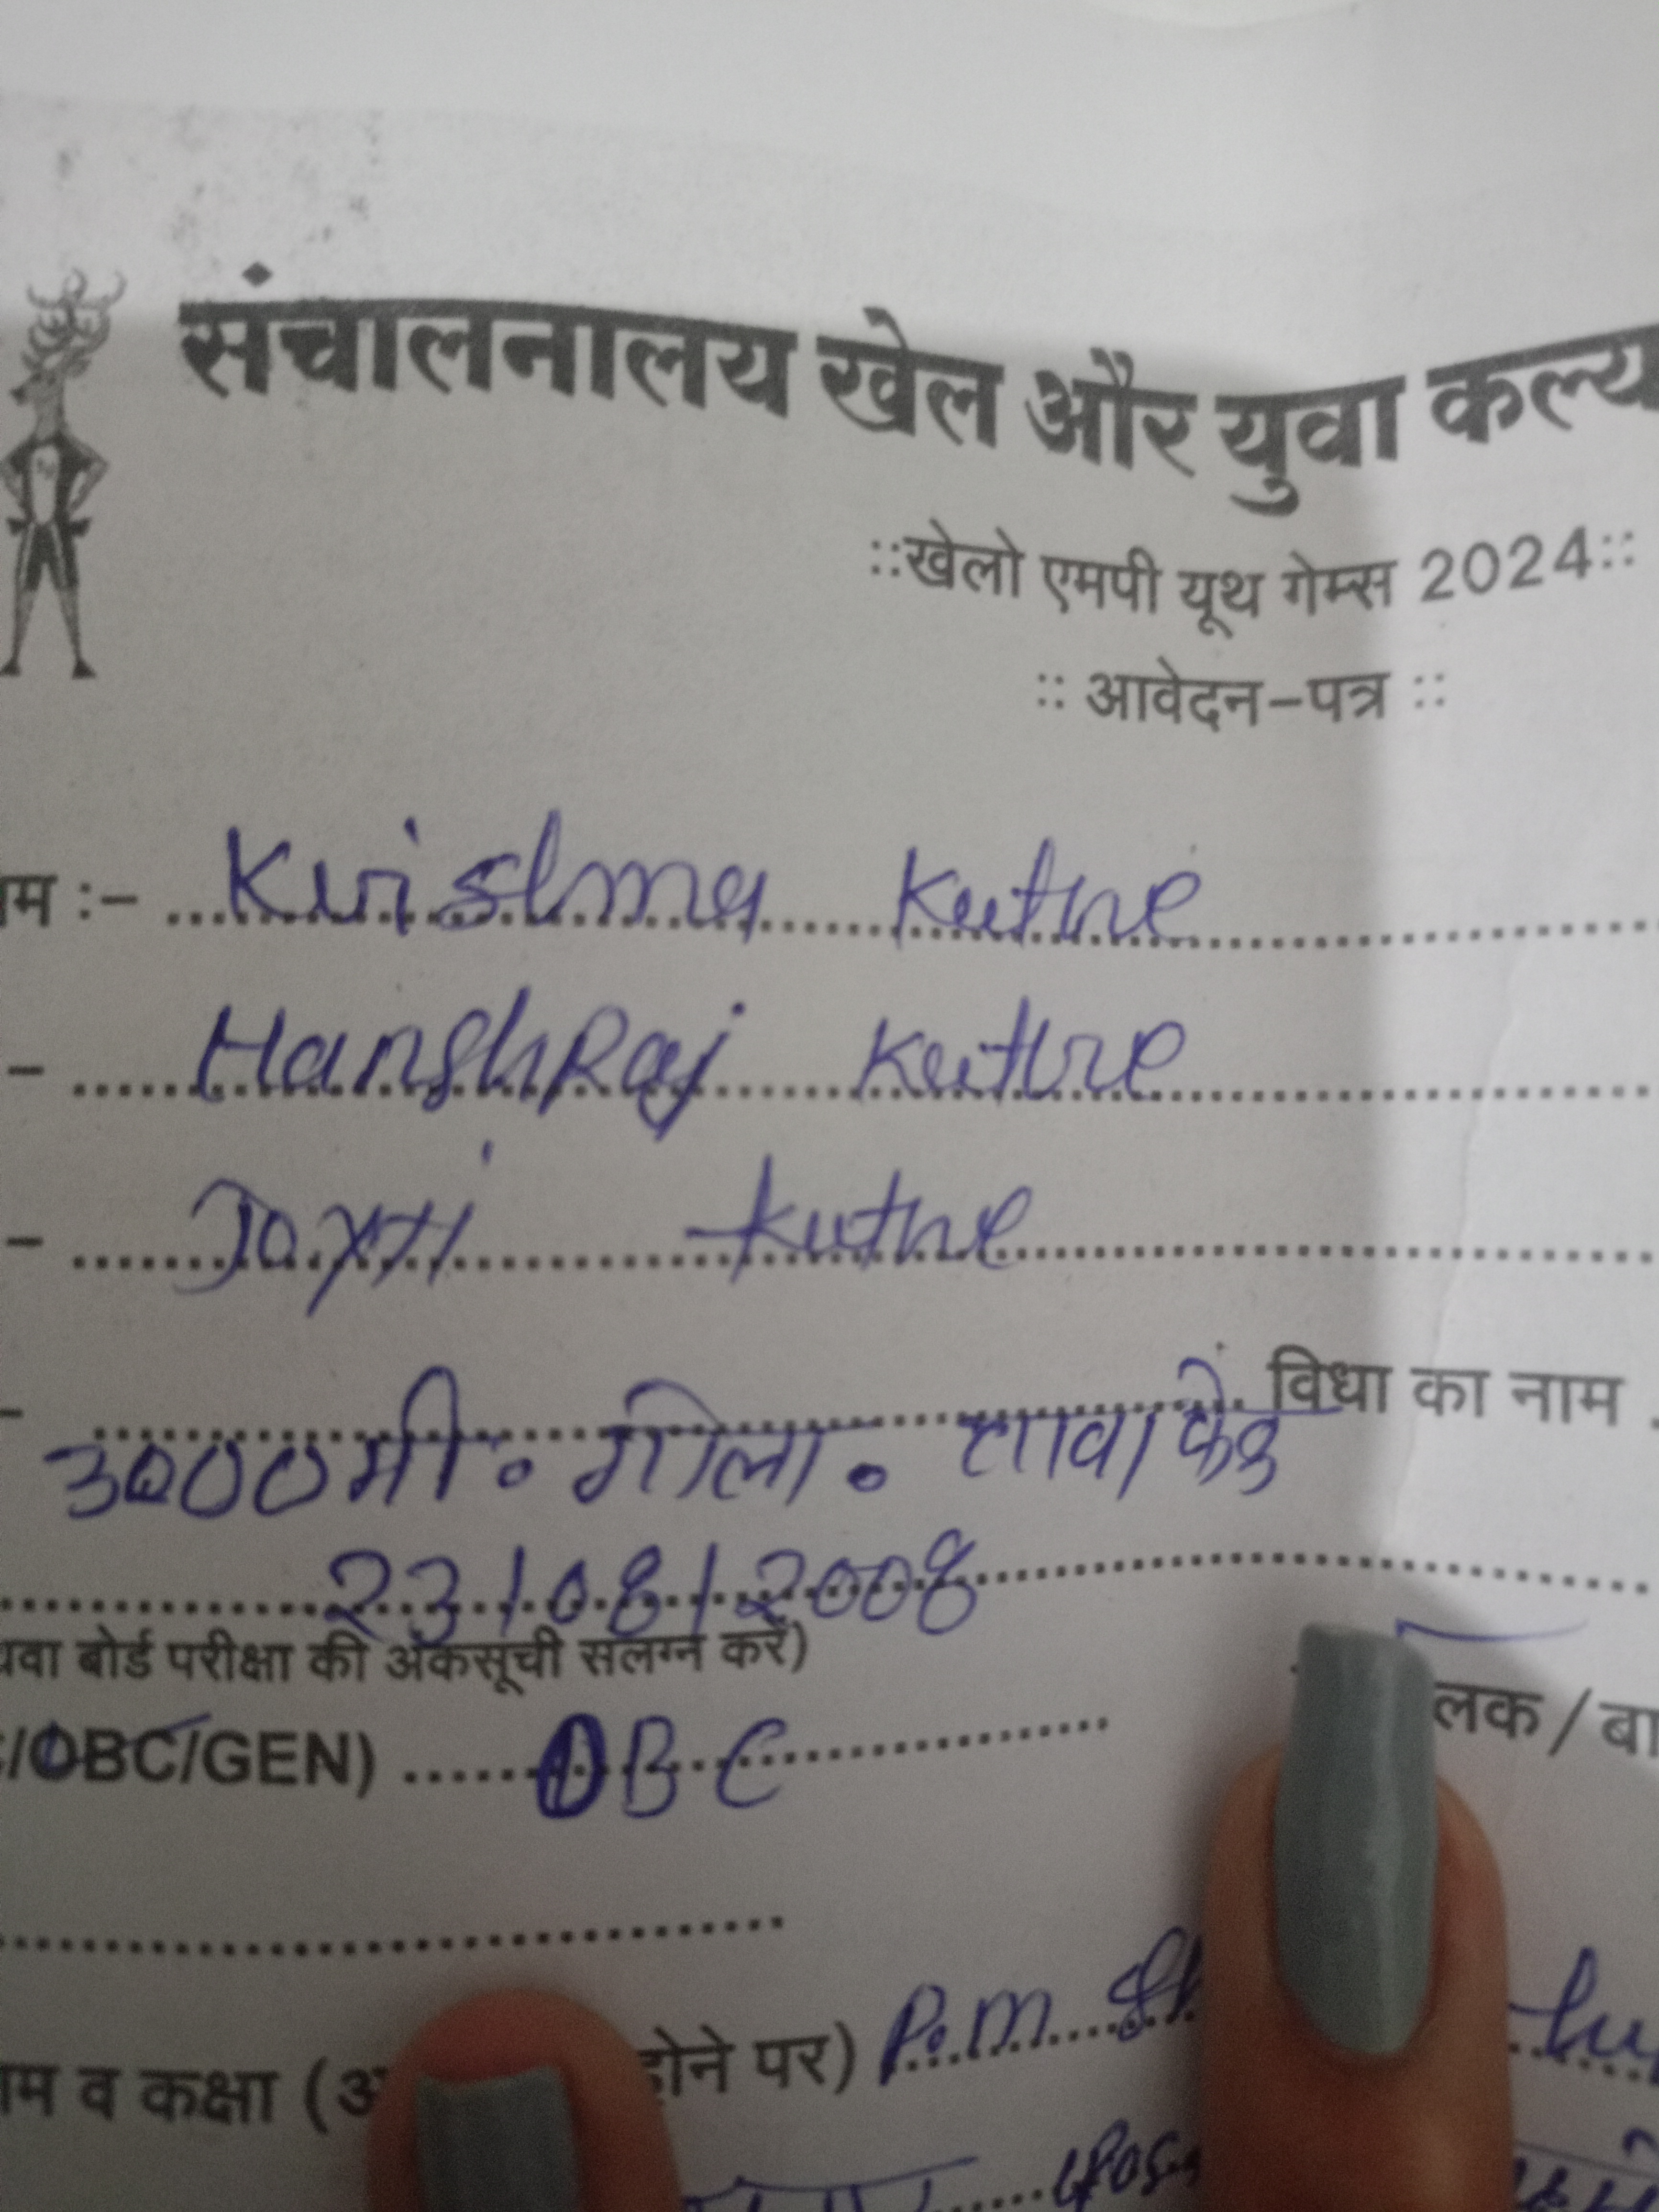 संचालनालय खेल और युवा कल्य
::खेलो एमपी यूथ गेम्स 2024::
:: आवेदन-पत्र ::
म :- Krishna Kuthre
- HanshRaj Kuthre
- Jayti Kuthre
- विधा का नाम
3000मी. गोला. तावा फेक
23/08/2008
थवा बोर्ड परीक्षा की अंकसूची संलग्न करें)
/OBC/GEN) OBC
लक / बा
म व कक्षा ( होने पर) P.m